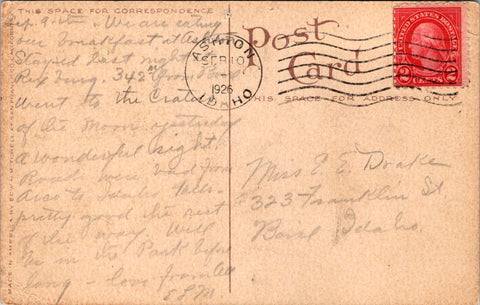 THIS SPACE FOR CORRESPONDENCE
Sep. 9-26. We are eating
our breakfast at Ashton
Stayed last night
Rexburg. 342
Went to the Craters
of the Moon yesterday
A wonderful sight
Roads were bad from
Arco to Idaho Falls.
pretty good the rest
of the way. Will
be in the Park before
long - love from all
ELM
ASHTON
SEP 10
1926
IDAHO
Post
Card
THIS SPACE FOR ADDRESS ONLY
UNITED STATES POSTAGE
2 2
Miss E. E. Drake
323 Franklin St
Boise Idaho.
MADE IN AMERICA